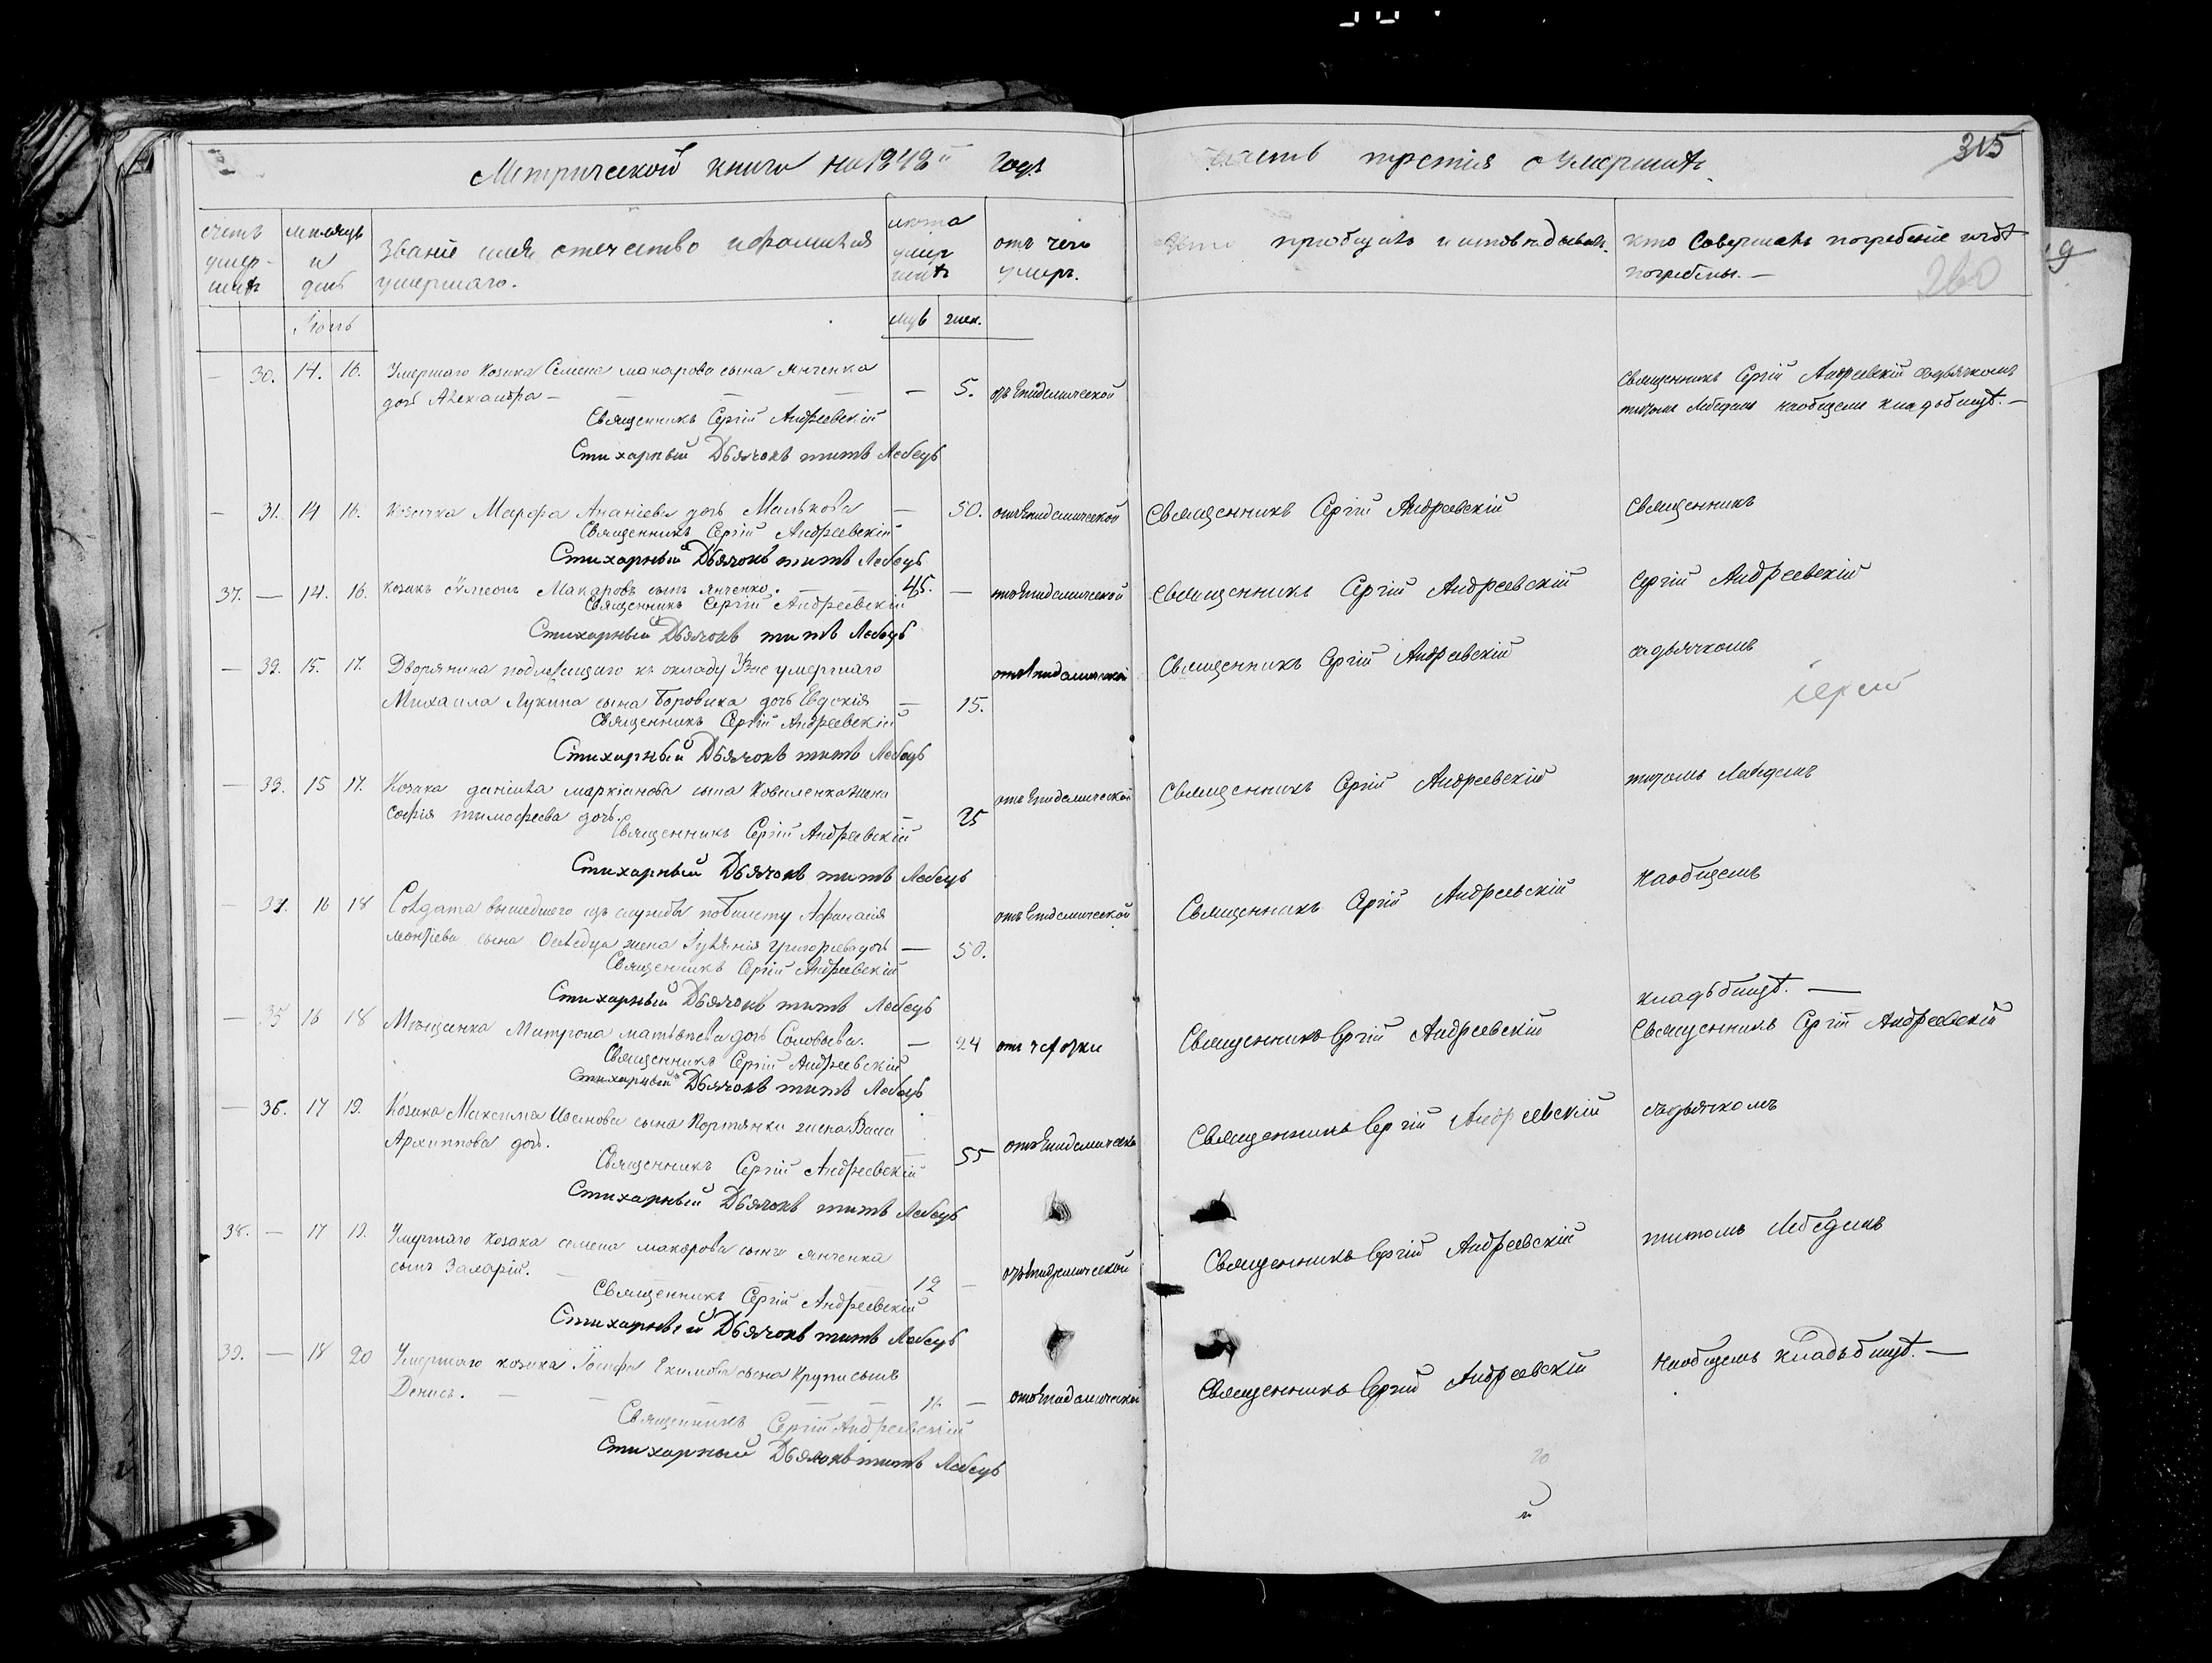 Метрической книги на 1848й годъ
часть третія о умершихъ
315
счетъ умер-шихъ
мѣсяцъ и день
Званіе имя отечество и фамилія умершаго.
лѣта умершихъ
отъ чего умеръ.
Кто приобщалъ и исповѣдывалъ.
кто Совершалъ погребеніе и гдѣ погребены. —
260
Іюль
муж жен.
— 30. 14. 16. Умершаго козака Семена макарова сына янченка — 5. отъ Епидемической
дочь Александра —
Священникъ Сергій Андреевскій
Стихарный Дьячокъ титъ Лебедь
Священникъ Сергій Андреевскій съдьячкомъ
титомъ Лебедемъ наобщемъ кладьбищѣ. —
— 31. 14 16. козачка Марфа Ананіева дочь Малькова — 50. отъ Епидемической Священникъ Сергій Андреевскій Священникъ
Священникъ Сергій Андреевскій
Стихарный Дьячокъ титъ Лебедь
37. — 14. 16. козакъ сѵмеонъ Макаровъ сынъ янченко. 45. — отъ Епидемической Священникъ Сергій Андреевскій Сергій Андреевскій
Священникъ Сергій Андреевскій
Стихарный Дьячокъ титъ Лебедь
— 32. 15. 17. Дворянина подлежащаго къ окладу Уже умершаго отъ Епидемической Священникъ Сергій Андреевскій съдьячкомъ
Михаила Лукина сына Боровика дочь Евдокія — 15.
Священникъ Сергій Андреевскій
Стихарный Дьячокъ титъ Лебедь
— 33. 15 17. Козака даніила маркіанова сына Коваленка жена отъ Епидемической Священникъ Сергій Андреевскій титомъ Лебедемъ
софія тимофеева дочь. — 25
Священникъ Сергій Андреевскій
Стихарный Дьячокъ титъ Лебедь
— 34. 16 18 Солдата вышедшего изъ службы побилету Афанасія отъ Епидемической Священникъ Сергій Андреевскій Наобщемъ
сына жена Іулянія григорьева дочь — 50.
Священникъ Сергій Андреевскій
Стихарный Дьячокъ титъ Лебедь
кладьбищѣ. —
— 35 16 18 Мѣщанка Матрона матвѣева дочь Соловьева. — 24 отъ чехотки Священникъ Сергій Андреевскій Священникъ Сергій Андреевскій
Священникъ Сергій Андреевскій
Стихарный Дьячокъ титъ Лебедь
— 36. 17 19. Козака Максима Иванова сына Портянки жена Васа
Архиппова дочь. — 55 отъ Епидемической Священникъ Сергій Андреевскій съдьячкомъ
Священникъ Сергій Андреевскій
Стихарный Дьячокъ титъ Лебедь
38. — 17 19. Умершаго козака семена макарова сына янченка
сынъ Захарій. — 12 — отъ Епидемической Священникъ Сергій Андреевскій титомъ Лебедемъ
Священникъ Сергій Андреевскій
Стихарный Дьячокъ титъ Лебедь
39. — 18 20 Умершаго козака Іосифа Екимова сына Крупи сынъ
Денисъ. — 16 — отъ Епидемической Священникъ Сергій Андреевскій Наобщемъ кладьбищѣ. —
Священникъ Сергій Андреевскій
Стихарный Дьячокъ титъ Лебедь
20